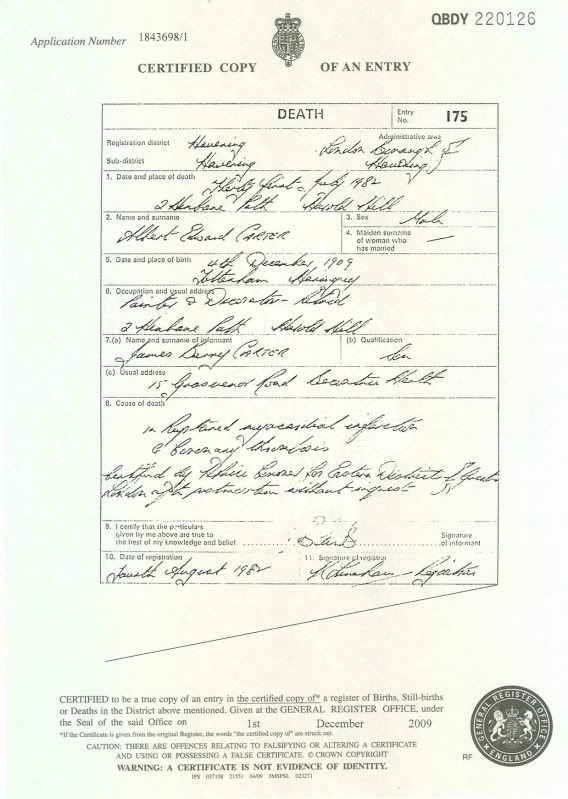 QBDY 220126
Application Number 1843698/1
CERTIFIED COPY OF AN ENTRY
DEATH
Entry No. 175
Registration district Havering
Administrative area
Sub-district Havering
London Borough of Havering
1. Date and place of death
Thirty first July 1982
2 Henbane Path Harold Hill
2. Name and surname
Albert Edward CARTER
3. Sex Male
4. Maiden surname
of woman who
has married —
5. Date and place of birth
4th December 1909
Tottenham Haringey
6. Occupation and usual address
Painter & Decorator - Retired
2 Henbane Path Harold Hill
7.(a) Name and surname of informant
James CARTER
(b) Qualification
Son
(c) Usual address
15 Grosvenor Road Becontree Heath
8. Cause of death
1a Ruptured myocardial infarction
b Coronary thrombosis
Certified by Coroner for Eastern District of Greater
London after postmortem without inquest
9. I certify that the particulars
given by me above are true to
the best of my knowledge and belief
Signature
of informant
10. Date of registration
Fourth August 1982
11. Signature of registrar
Registrar
CERTIFIED to be a true copy of an entry in the certified copy of* a register of Births, Still-births
or Deaths in the District above mentioned. Given at the GENERAL REGISTER OFFICE, under
the Seal of the said Office on 1st December 2009
*If the Certificate is given from the original Register, the words "the certified copy of" are struck out.
CAUTION: THERE ARE OFFENCES RELATING TO FALSIFYING OR ALTERING A CERTIFICATE
AND USING OR POSSESSING A FALSE CERTIFICATE. © CROWN COPYRIGHT
WARNING: A CERTIFICATE IS NOT EVIDENCE OF IDENTITY.
IPS 037108 21551 04/09 3MSPSL 023271
RF
GENERAL REGISTER OFFICE
ENGLAND